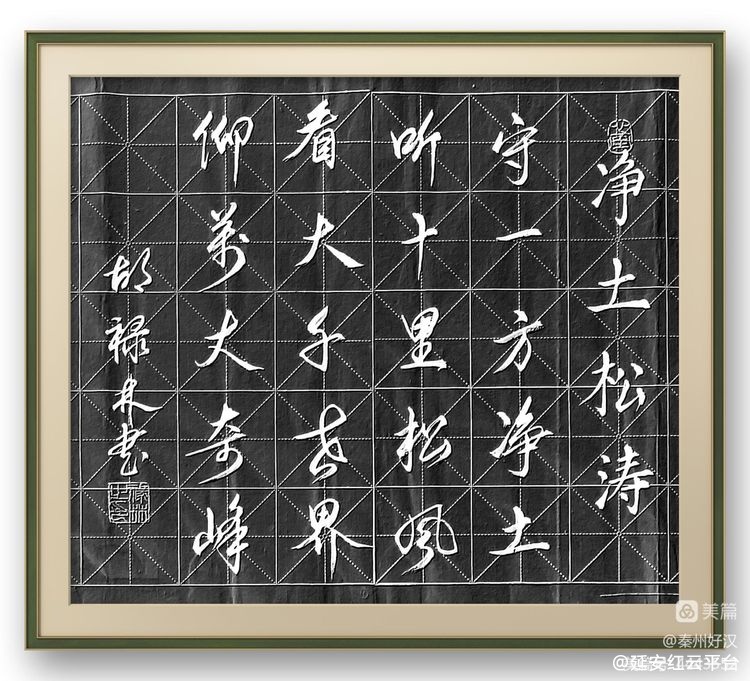 净土松涛
守一方净土
听十里松风
看大千世界
仰萬丈奇峰
胡禄木书
美篇
@秦州好汉
@延安红云平台